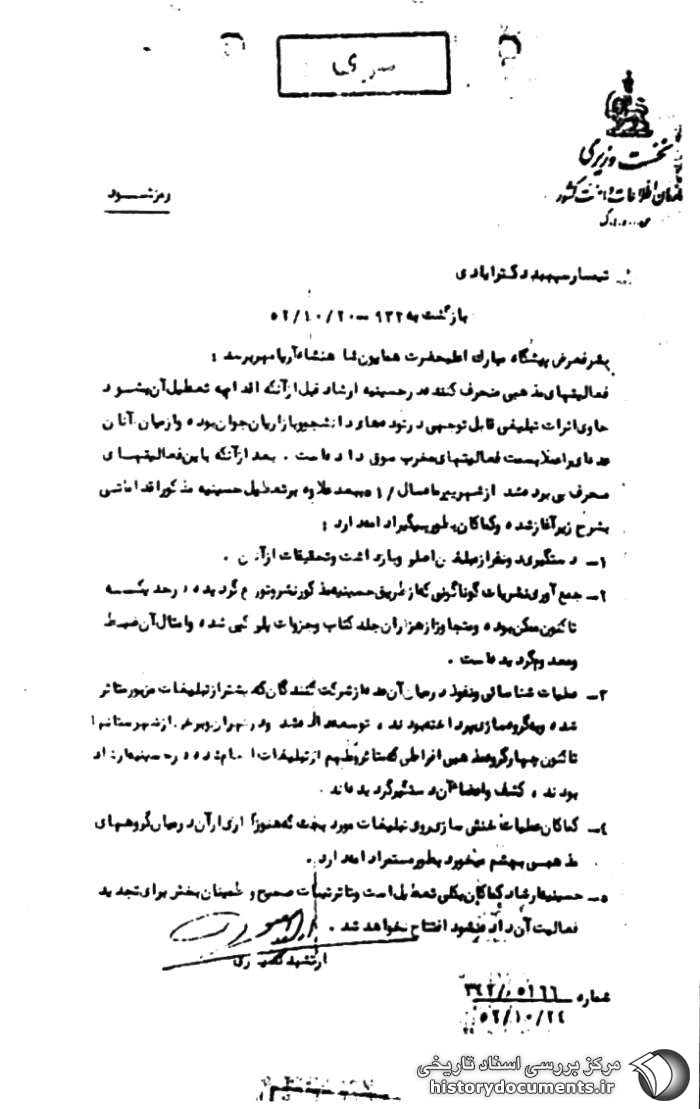 سری
نخست وزیری
سازمان اطلاعات و امنیت کشور
رمز شود
تیمسار سپهبد دکتر ایادی
بازگشت به ۹۳۲ - ۵۲/۱۰/۲۰
بشرفعرض پیشگاه مبارک اعلیحضرت همایون شاهنشاه آریامهر برسد :
فعالیتهای مذهبی منحرف کننده در حسینیه ارشاد قبل از آنکه اقدام به تعطیل آن بشود
حاوی اثرات تبلیغی قابل توجهی در توده های دانشجو و بازاریان جوان بوده و از میان آنان
عده ای را عملا بسمت فعالیتهای مخرب سوق داده است . بعد از آنکه باین فعالیتهای
منحرف پی برده شد از شهریور ماه سال ۵۱ ببعد علاوه بر تعطیل حسینیه مذکور اقداماتی
بشرح زیر آغاز شده و کماکان بطور پیگیر ادامه دارد :
۱- دستگیری دو نفر از مبلغین اصلی و بازداشت و تحقیقات از آنان .
۲- جمع آوری نشریات گوناگونی که از طریق حسینیه مذکور نشر و توزیع گردیده در حدیکه
تاکنون ممکن بوده و متجاوز از هزاران جلد کتاب و جزوات پلی کپی شده و امثال آن ضبط
و معدوم گردیده است .
۳- عملیات شناسائی و نفوذ در میان آن عده از شرکت کنندگان که بیشتر از تبلیغات مزبور متاثر
شده و به گروه سازی پرداخته بودند ، توسعه داده شد و در تهران و برخی از شهرستانها
تاکنون چهار گروه مذهبی افراطی که متاثر و ملهم از تبلیغات انجام شده در حسینیه ارشاد
بودند ، کشف و اعضاء آن دستگیر گردیده اند .
۴- کماکان عملیات خنثی سازی روی تبلیغات مورد بحث که هنوز آثاری از آن در میان گروههای
مذهبی بچشم میخورد بطور مستمر ادامه دارد .
۵- حسینیه ارشاد کماکان بکلی تعطیل است و تا ترتیبات صحیح و اطمینان بخش برای تجدید
فعالیت آن داده نشود افتتاح نخواهد شد .
ارتشبد نصیری
شماره ۳۴۲/۰۵۱۶۶
۵۲/۱۰/۲۴
مرکز بررسی اسناد تاریخی
historydocuments.ir